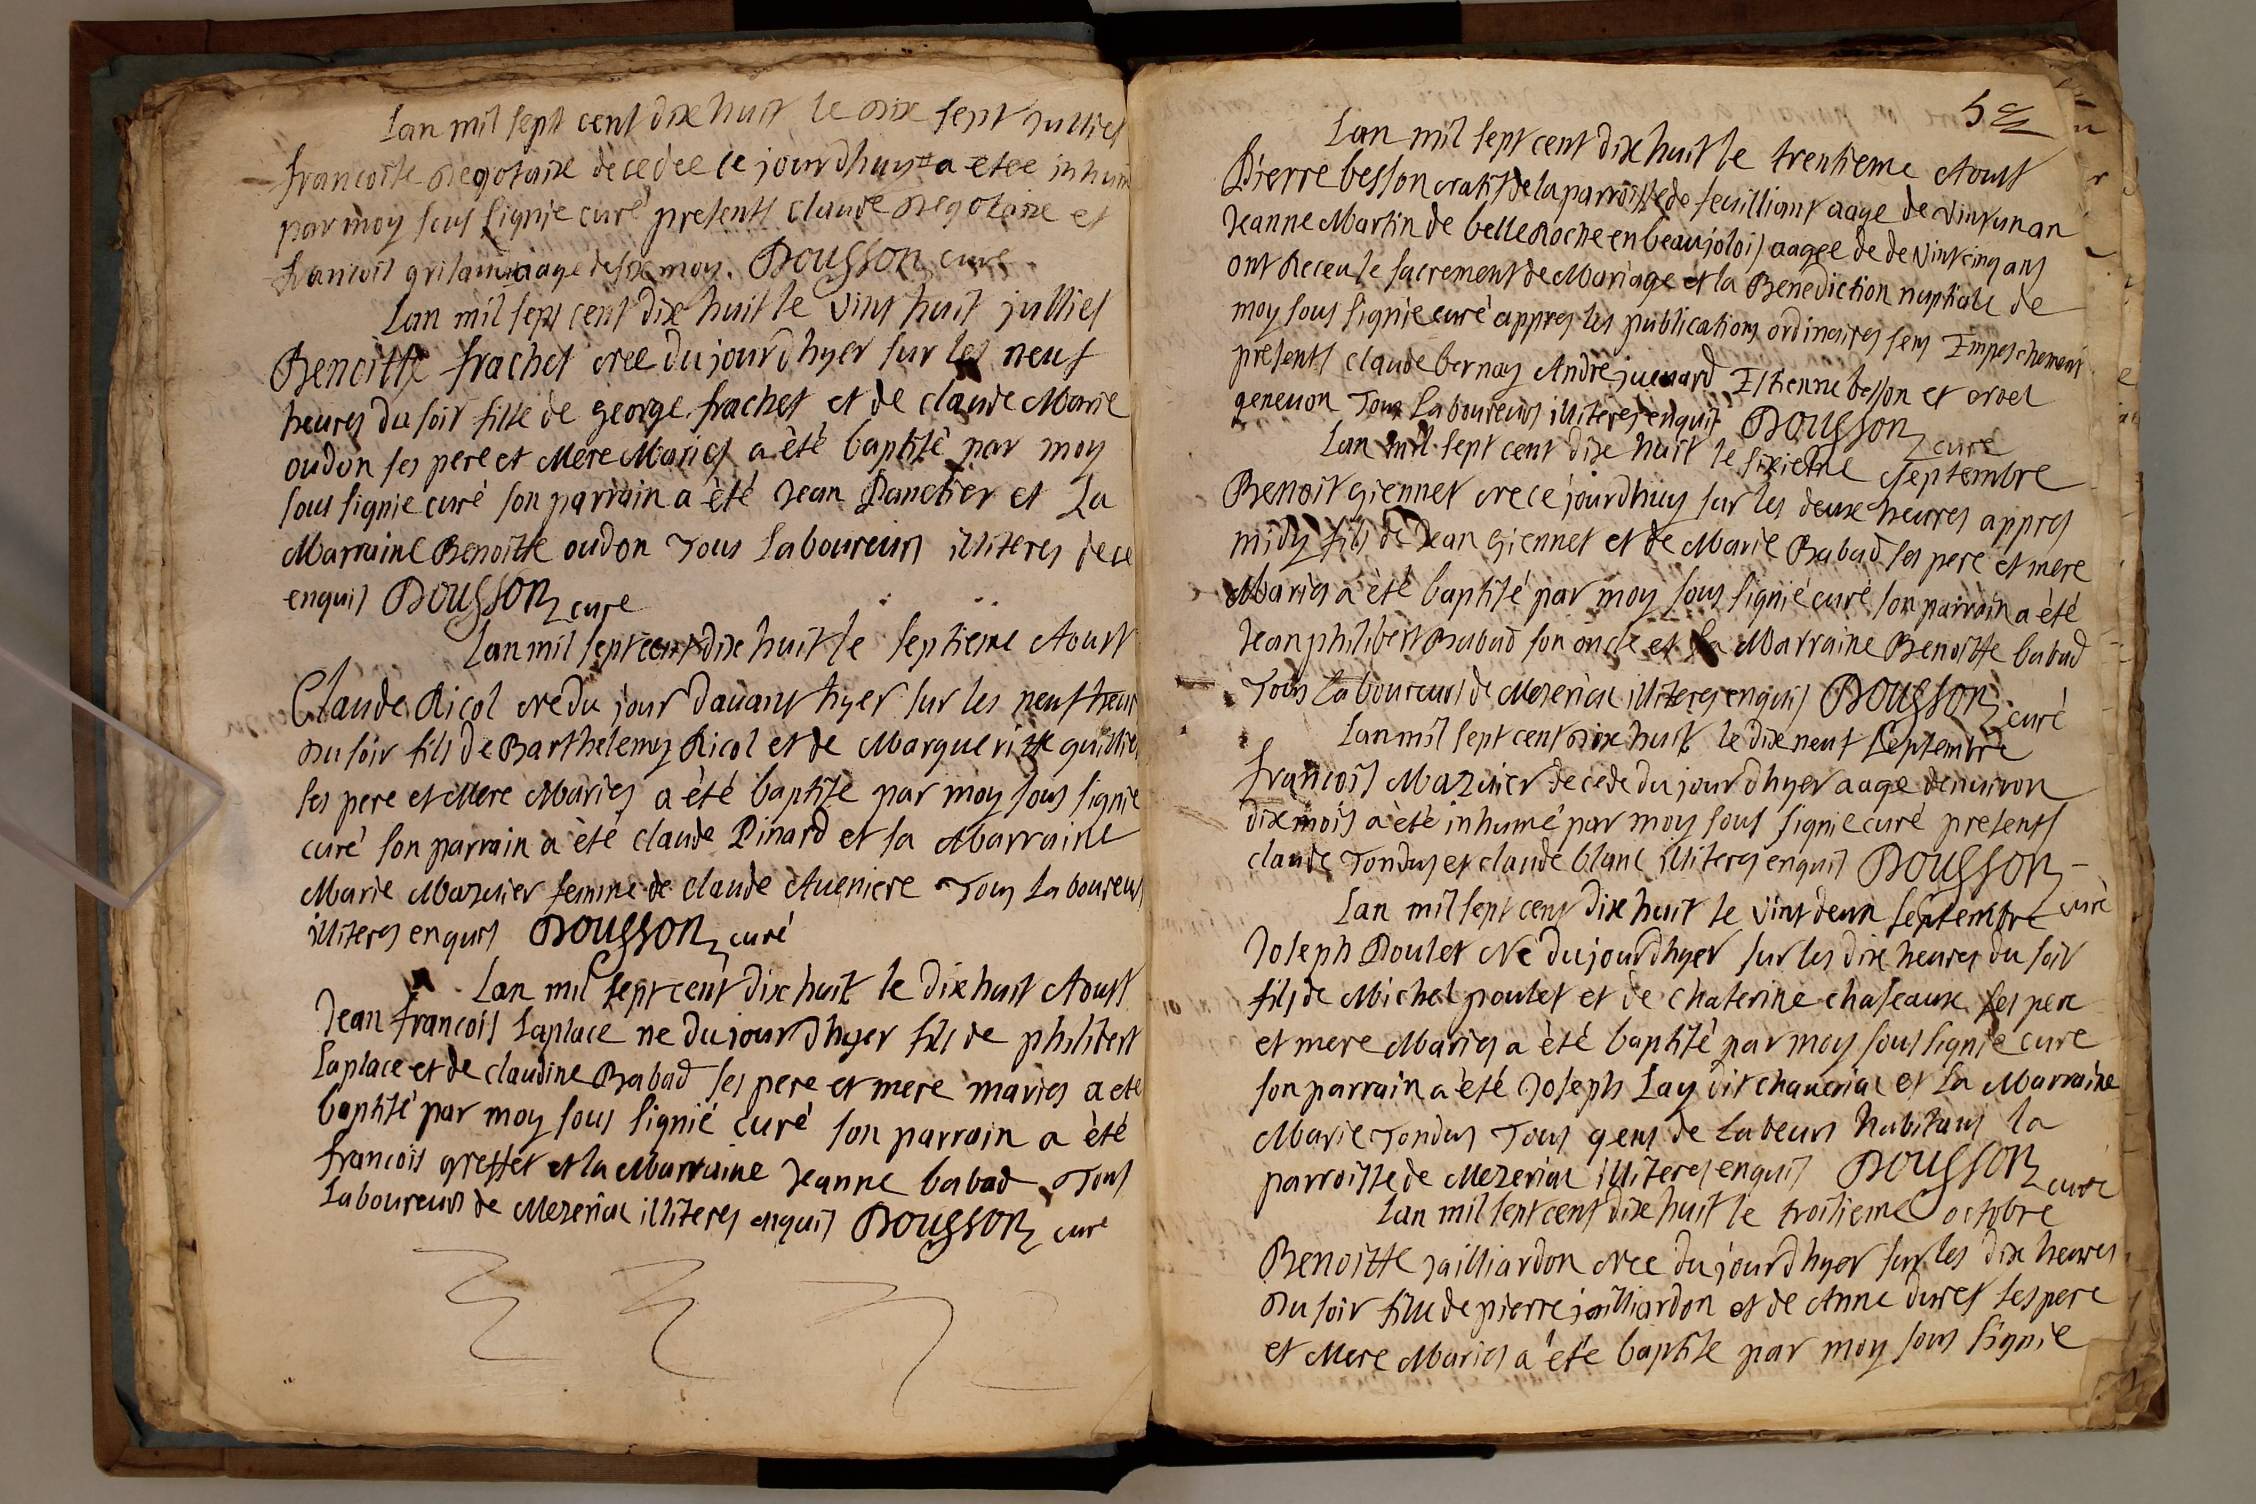 Lan mil sept cent dix huit le dix sept julliet
francoise decedee ce jourdhuy a etee inhum
par moy sous signie curé presents claude et
francois aage de six moy. Dousson curé
Lan mil sept cent dix huit le vint huit julliet
Benoitte frachet nee du jourdhyer sur les neuf
heures du soir fille de george frachet et de claude Marie
oudon ses pere et Mere Maries a èté baptisè par moy
sous signie curé son parrain a èté Jean Panetier et La
Marraine Benoitte oudon Tous Laboureurs illiteres de ce
enquis Dousson curé
Lan mil sept cent dix huit le septieme Aoust
Claude Ricol né du jour davant hyer sur les neuf heur
du soir fils de Barthelemy Ricol et de Margueritte
ses pere et Mere Maries a èté baptise par moy sous signie
curé son parrain a èté claude Pinard et sa Marraine
Marie Mazuier femme de claude Aueniere Tous Laboureurs
illiteres enquis Dousson curé
Lan mil sept cent dix huit le dix huit Aoust
Jean francois Laplace ne du jourdhyer fils de philibert
Laplace et de claudine Babad ses pere et mere maries a ete
baptisé par moy sous signié curé son parrain a èté
francois greffet et la Marraine Jeanne babad Tous
Laboureurs de Mezeriac illiteres enquis Dousson curé
Lan mil sept cent dix huit le trentieme Aoust
Pierre besson natif de la parroisse de feuilliant aage de vint un an
Jeanne Martin de belleRoche en beaujolois aagee de de vint cinq ans
ont Receu le sacrement de Mariage et la Benediction nuptiale de
moy sous signie curé appres les publications ordinaires sens Empeschement
presents claude bernay André Estienne besson et noel
geneuon Tous Laboureurs illiteres enquis Dousson curé
Lan mil sept cent dix huit le sixieme Septembre
Benoit giennet ne ce jourdhuy sur les deux heures appres
midy fils de Jean giennet et de Marie Babad ses pere et mere
Maries a èté baptisé par moy sous signié curé son parrain a èté
Jean philibert Babad son oncle et La Marraine Benoitte babad
Tous Laboureurs de Mezeriac illiteres enquis Dousson curé
Lan mil sept cent dix huit le dix neuf Septembre
francois Mazuier decede du jourdhyer aage denuiron
dix mois a èté inhumé par moy sous signie curé presents
claude Tondus et claude blanc illiteres enquis Dousson
curé
Lan mil sept cent dix huit le vint deux septembre
Joseph Poulet Né du jourdhyer sur les dix heures du soir
fils de Michel poulet et de Chaterine chaseaux ses pere
et mere Maries a èté baptisé par moy sous signie curé
son parrain a èté Joseph Lay dit chaueriac et La Marraine
Marie Tondus Tous gens de Labeurs habitans la
parroisse de Mezeriac illiteres enquis Dousson curé
Lan mil sept cent dix huit le troisieme octobre
Benoitte jailliardon nee du jourdhyer sur les dix heures
du soir fille de pierre jailliardon et de Anne duret ses pere
et Mere Maries a èté baptise par moy sous signie